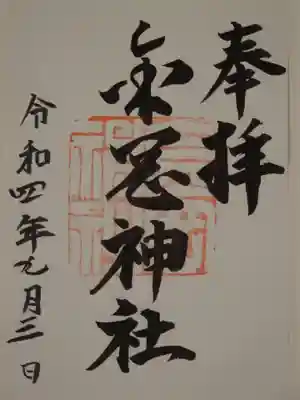 奉拝
金岡神社
令和四年九月三日